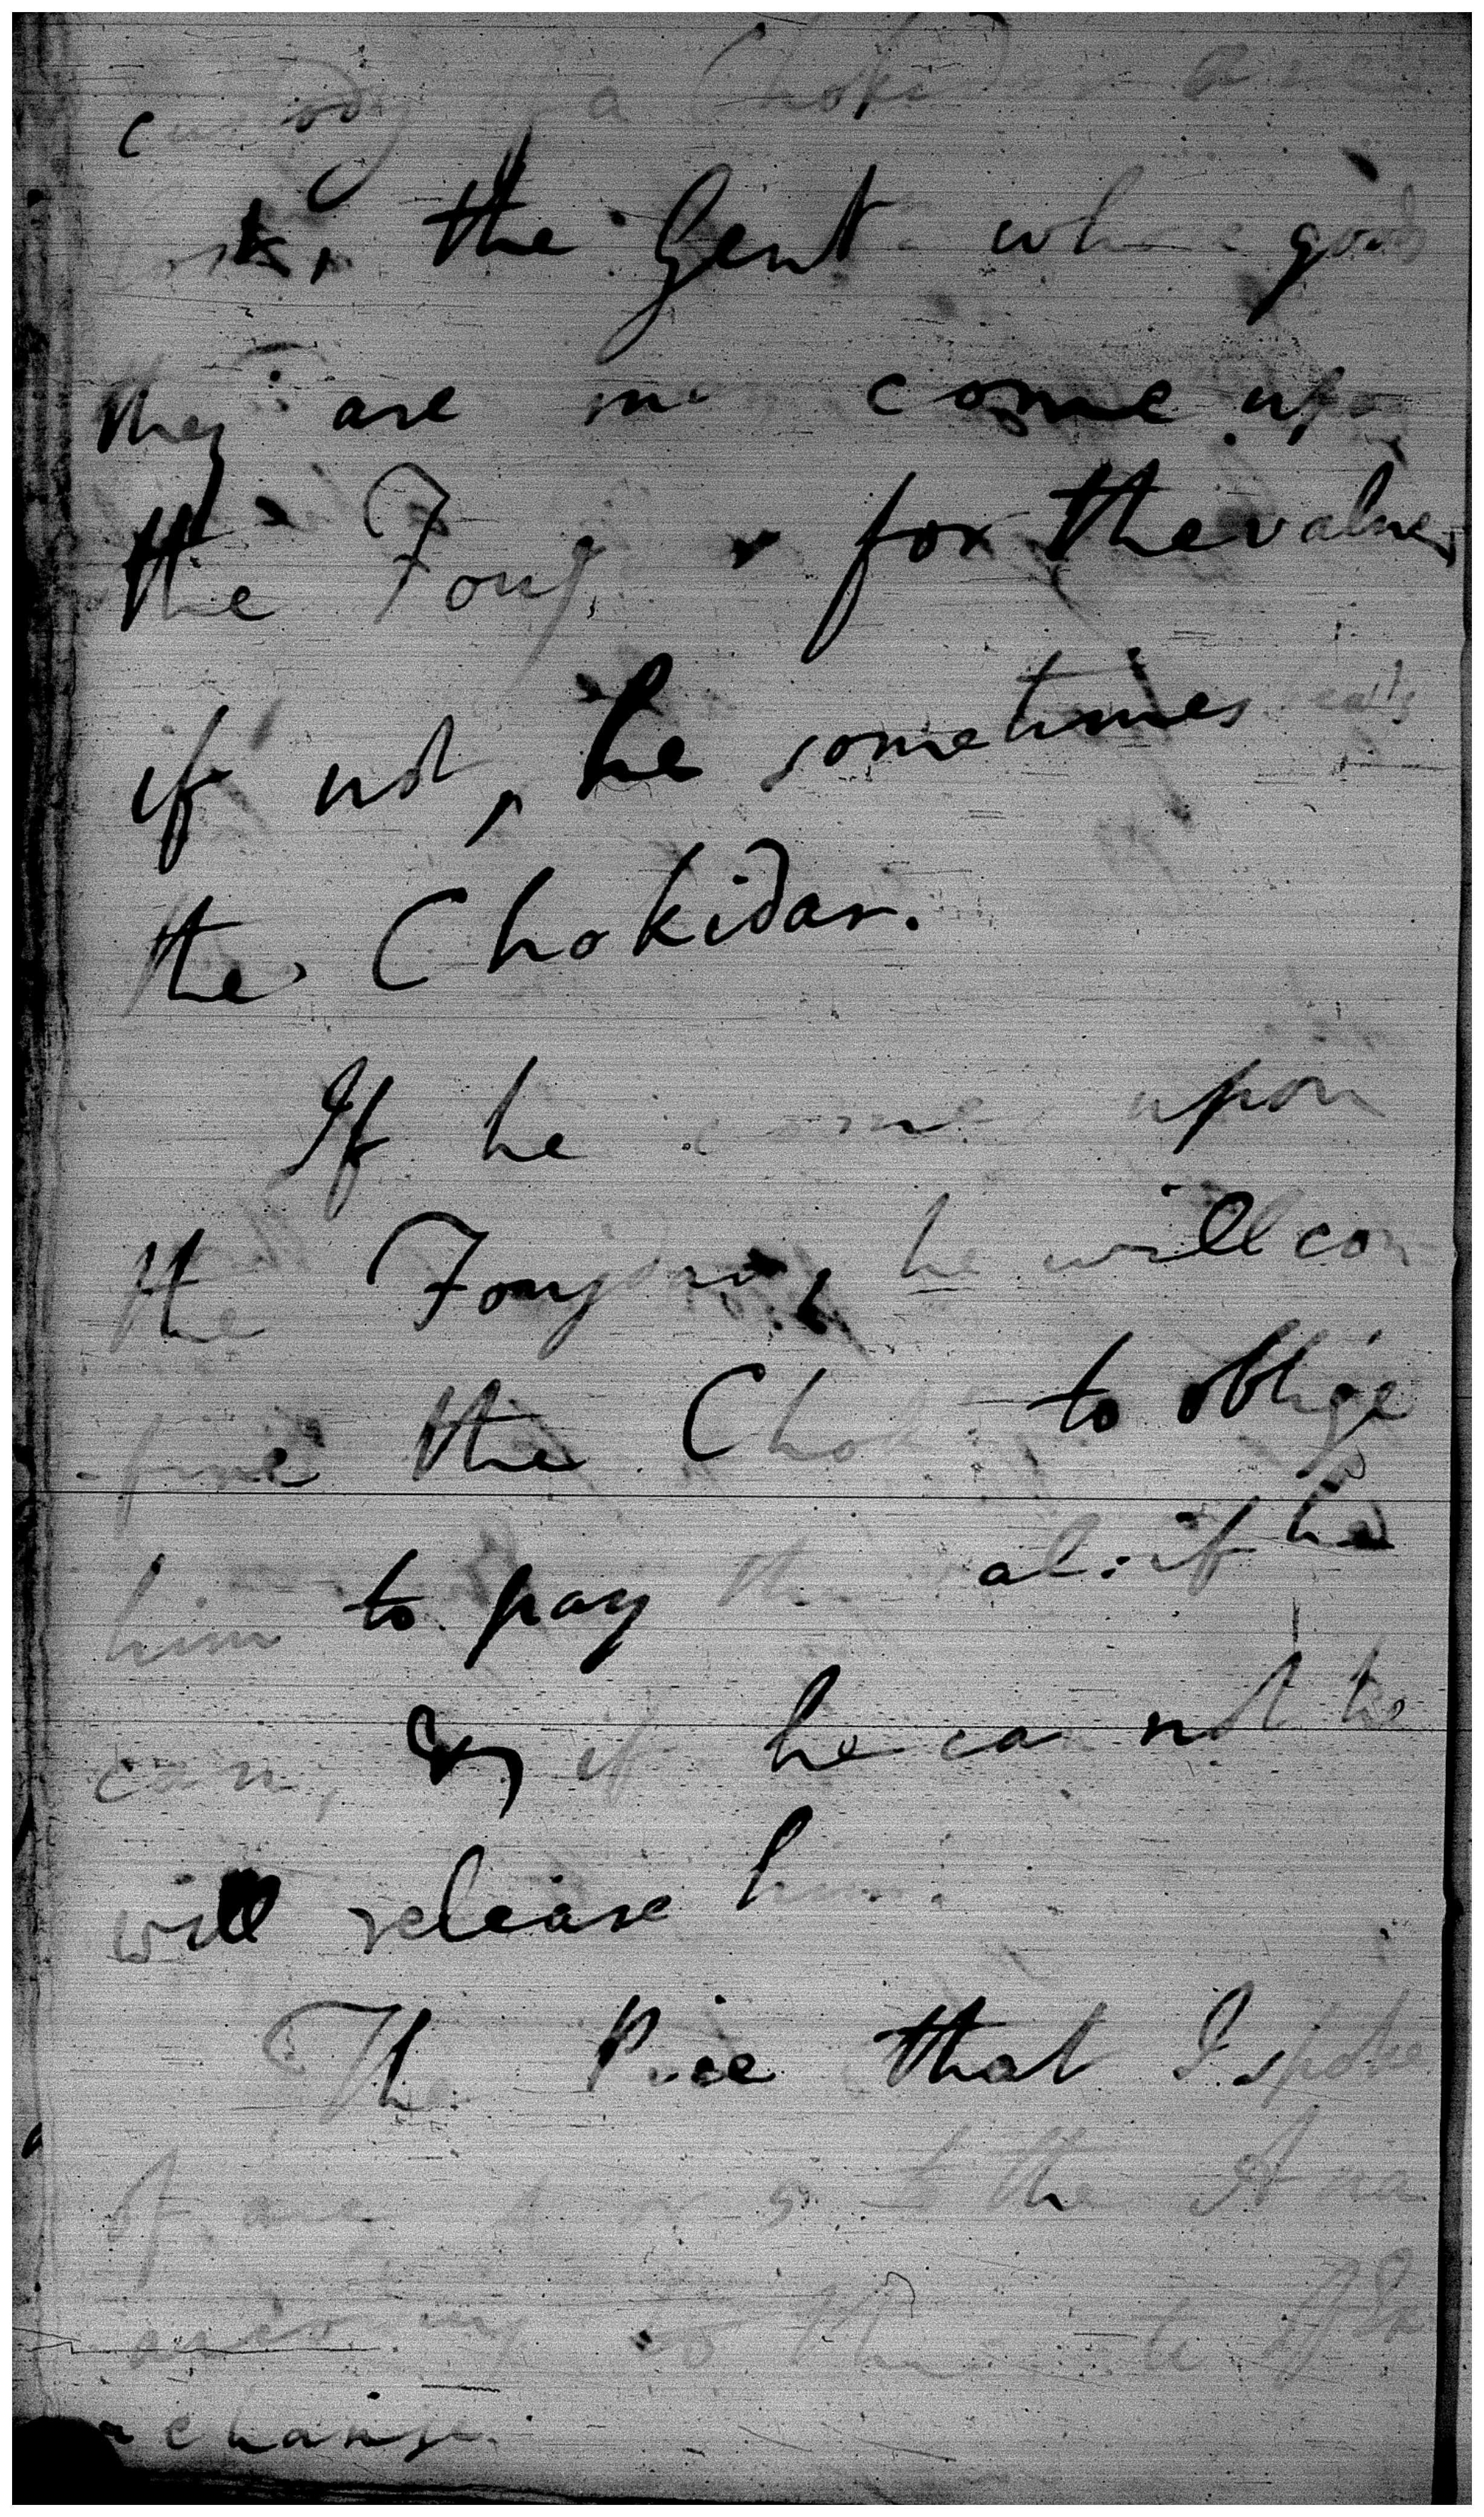 custody of a Chokidar are
lost, the Gent. whose goods
they are may come upon
the Fouj for the value,
if not, he sometimes beats
the Chokidar.
If he come upon
the Foujdar, he will con-
-fine the Chok to oblige
him to pay the val: if he
can, & if he cannot he
will release him.
The Pice that I spoke
of are 4 or 5 to the Ana
according to the rate of Ex
change.